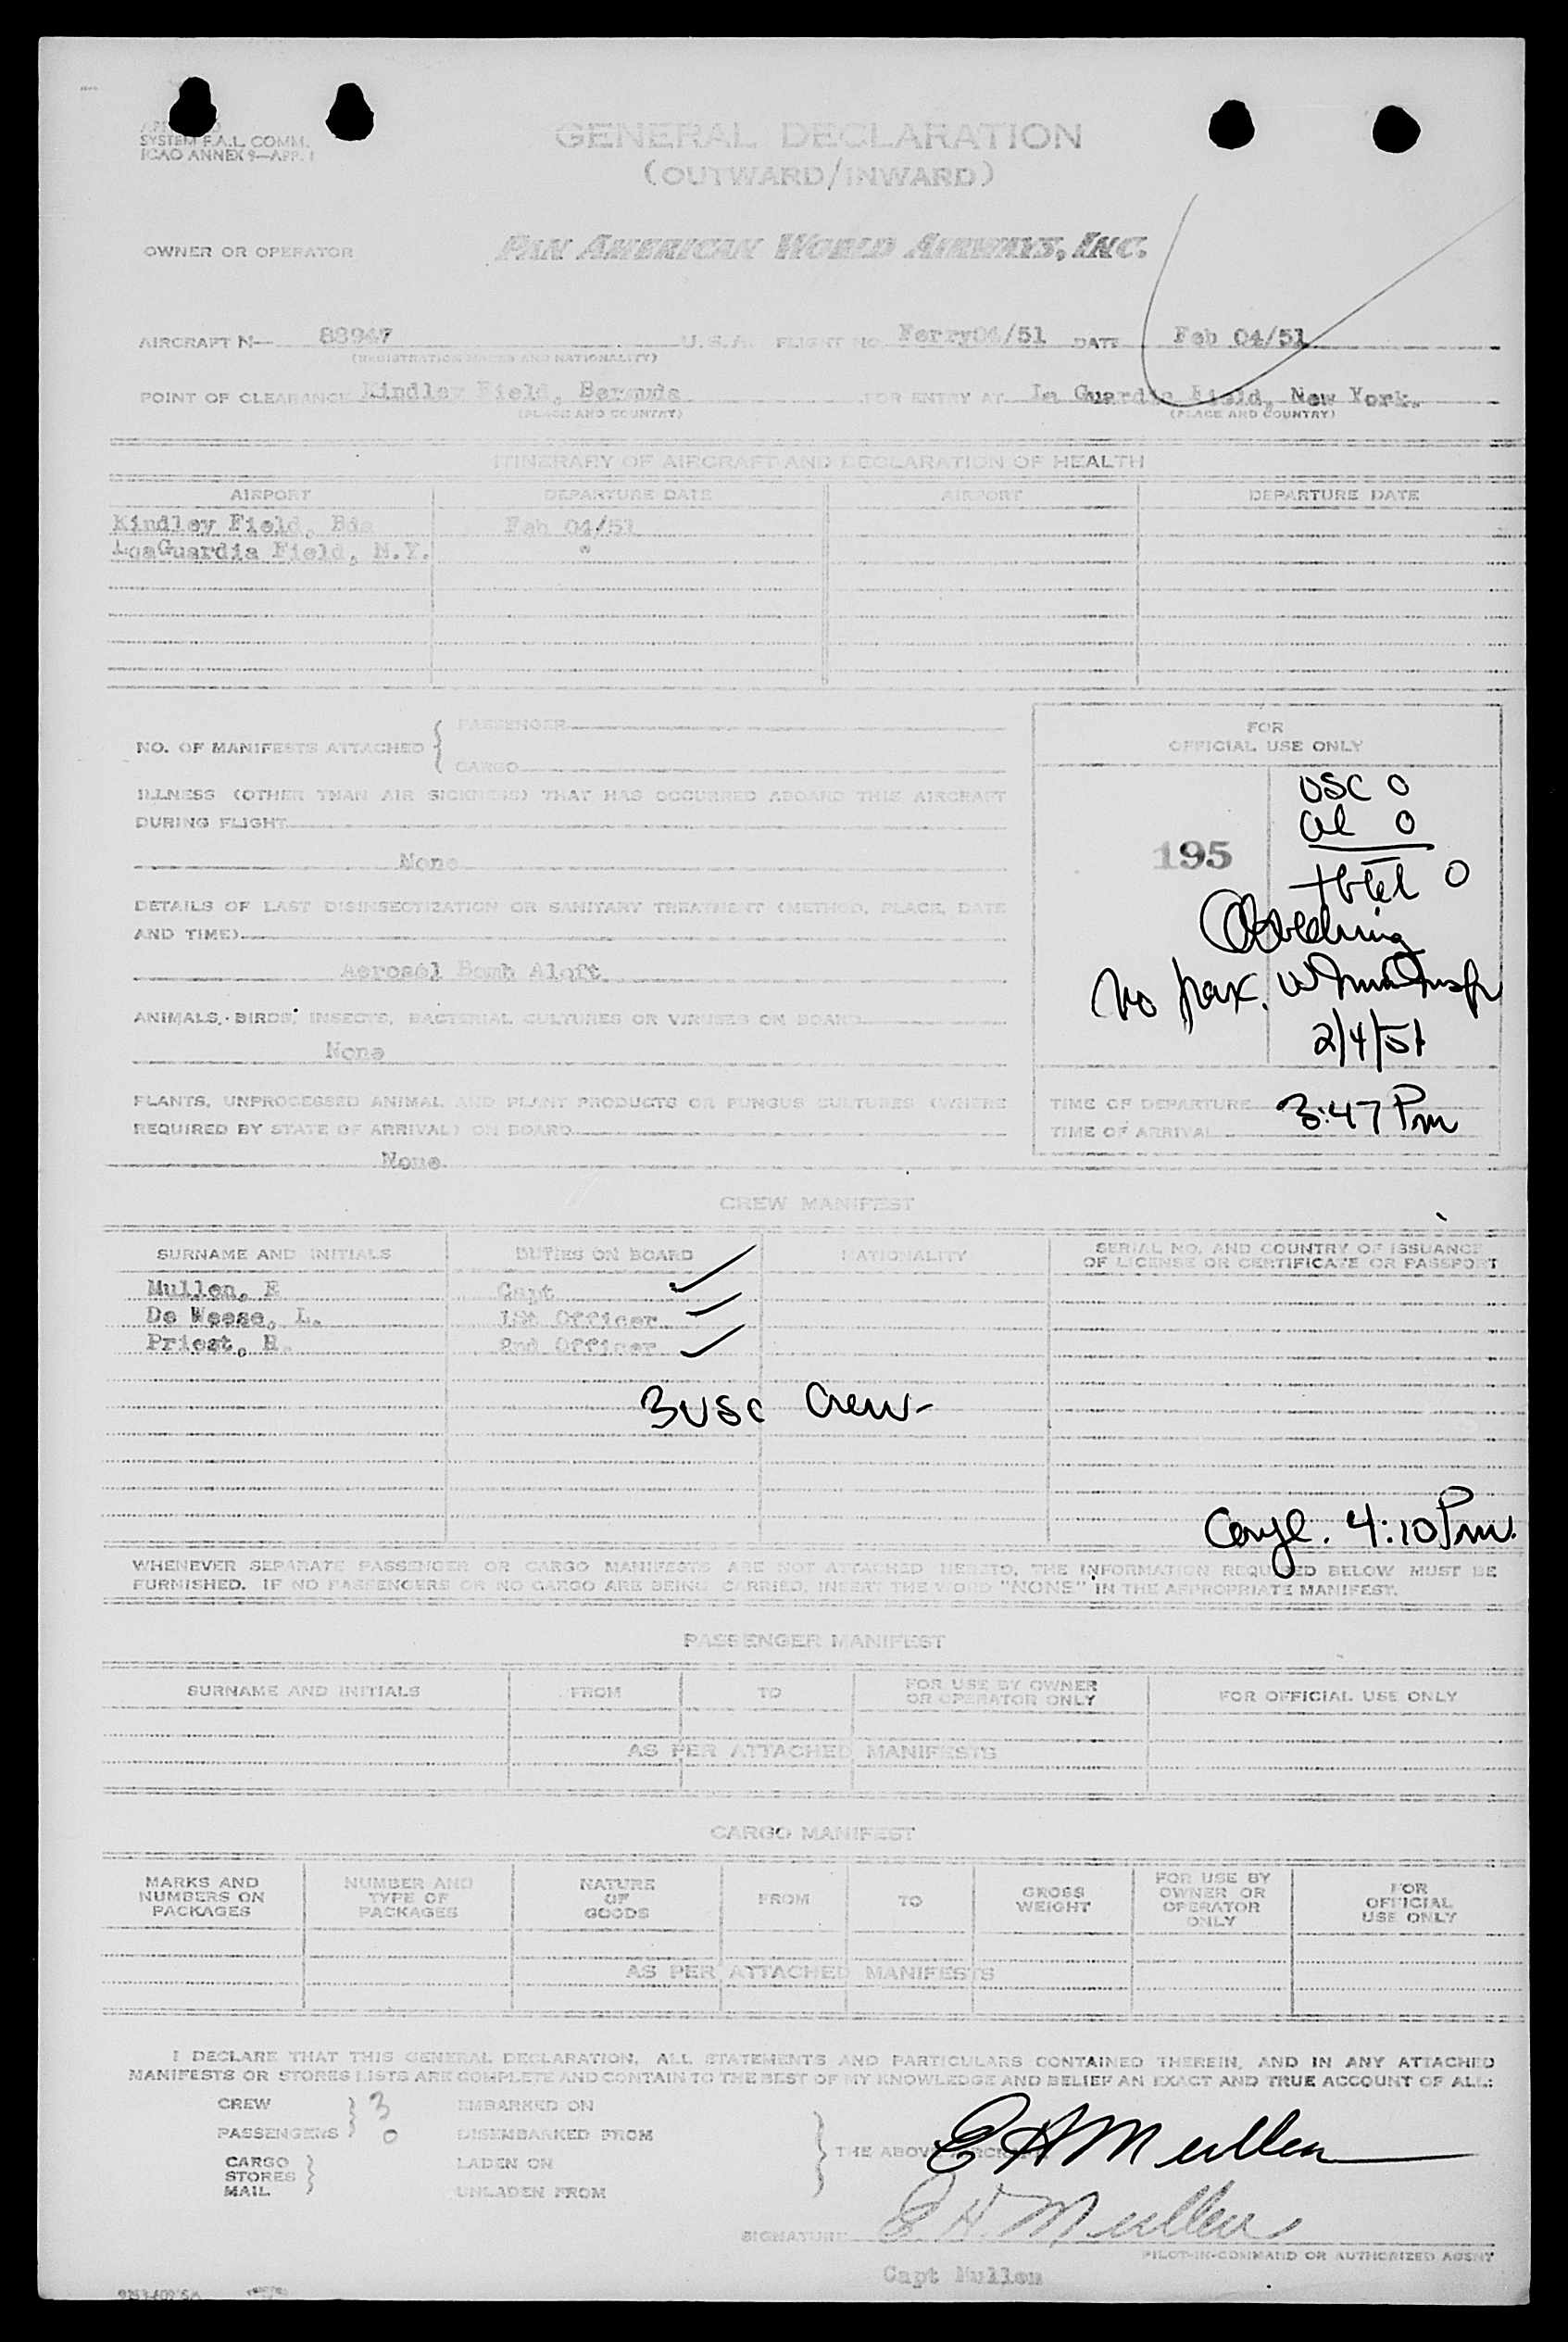 SYSTEM F.A.L. COMM.
ICAO ANNEX 9—APP. 1
GENERAL DECLARATION
(OUTWARD/INWARD)
OWNER OR OPERATOR PAN AMERICAN WORLD AIRWAYS, INC.
AIRCRAFT N— 88947 U.S.A. FLIGHT NO. Ferry04/51 DATE Feb 04/51
(REGISTRATION MARKS AND NATIONALITY)
POINT OF CLEARANCE Kindley Field, Bermuda FOR ENTRY AT La Guardia Field, New York.
(PLACE AND COUNTRY) (PLACE AND COUNTRY)
ITINERARY OF AIRCRAFT AND DECLARATION OF HEALTH
AIRPORT DEPARTURE DATE AIRPORT DEPARTURE DATE
Kindley Field, Bda Feb 04/51
LaGuardia Field, N.Y. "
NO. OF MANIFESTS ATTACHED { PASSENGER
CARGO
ILLNESS (OTHER THAN AIR SICKNESS) THAT HAS OCCURRED ABOARD THIS AIRCRAFT
DURING FLIGHT
None
DETAILS OF LAST DISINSECTIZATION OR SANITARY TREATMENT (METHOD, PLACE, DATE
AND TIME)
Aerosol Bomb Aloft
ANIMALS, BIRDS, INSECTS, BACTERIAL CULTURES OR VIRUSES ON BOARD
None
PLANTS, UNPROCESSED ANIMAL AND PLANT PRODUCTS OR FUNGUS CULTURES (WHERE
REQUIRED BY STATE OF ARRIVAL) ON BOARD
None
FOR
OFFICIAL USE ONLY
USC 0
al 0
195
total 0
No pax.
2/4/51
TIME OF DEPARTURE 3:47 Pm
TIME OF ARRIVAL
CREW MANIFEST
SURNAME AND INITIALS DUTIES ON BOARD NATIONALITY SERIAL NO. AND COUNTRY OF ISSUANCE
OF LICENSE OR CERTIFICATE OR PASSPORT
Mullen, E Capt
De Weese, L. 1st Officer
Priest, R. 2nd Officer
3 USC Crew-
4:10 Pm.
WHENEVER SEPARATE PASSENGER OR CARGO MANIFESTS ARE NOT ATTACHED HERETO, THE INFORMATION REQUIRED BELOW MUST BE
FURNISHED. IF NO PASSENGERS OR NO CARGO ARE BEING CARRIED, INSERT THE WORD "NONE" IN THE APPROPRIATE MANIFEST.
PASSENGER MANIFEST
SURNAME AND INITIALS FROM TO FOR USE BY OWNER
OR OPERATOR ONLY FOR OFFICIAL USE ONLY
AS PER ATTACHED MANIFESTS
CARGO MANIFEST
MARKS AND
NUMBERS ON
PACKAGES
NUMBER AND
TYPE OF
PACKAGES
NATURE
OF
GOODS
FROM
TO
GROSS
WEIGHT
FOR USE BY
OWNER OR
OPERATOR
ONLY
FOR
OFFICIAL
USE ONLY
AS PER ATTACHED MANIFESTS
I DECLARE THAT THIS GENERAL DECLARATION, ALL STATEMENTS AND PARTICULARS CONTAINED THEREIN, AND IN ANY ATTACHED
MANIFESTS OR STORES LISTS ARE COMPLETE AND CONTAIN TO THE BEST OF MY KNOWLEDGE AND BELIEF AN EXACT AND TRUE ACCOUNT OF ALL:
CREW } 3 EMBARKED ON
PASSENGERS } 0 DISEMBARKED FROM
THE ABOVE AIRCRAFT E H Mullen
CARGO
STORES
MAIL
LADEN ON
UNLADEN FROM
SIGNATURE E H. Mullen
PILOT-IN-COMMAND OR AUTHORIZED AGENT
Capt Mullen